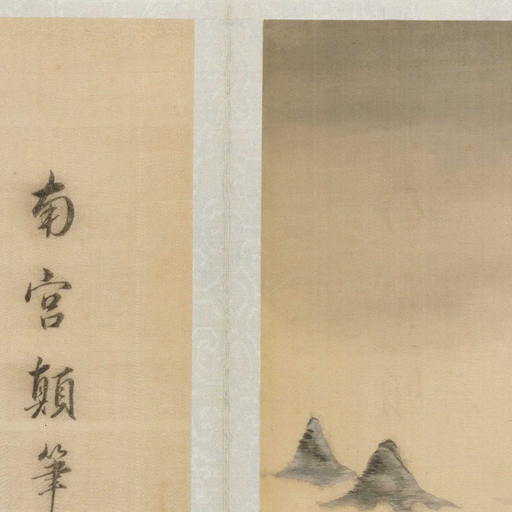 南宮顛筆